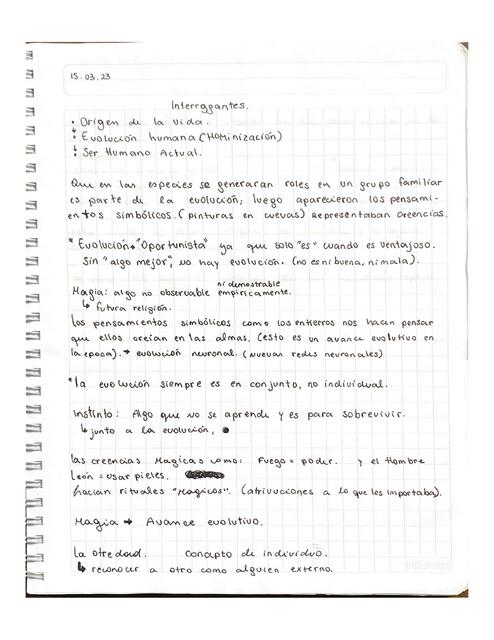 15.03.23
Interrogantes.
• Origen de la vida.
• Evolución humana (HOMinización)
• Ser Humano Actual.
Que en las especies se generaran roles en un grupo familiar
es parte de la evolución, luego aparecieron los pensami-
entos simbólicos. (pinturas en cuevas) Representaban creencias.
"Evolución → "Oportunista" ya que solo "es" cuando es ventajoso.
Sin "algo mejor", no hay evolución. (no es ni buena, ni mala).
ni demostrable
Magia: algo no observable empíricamente.
↳ futura religión.
Los pensamientos simbólicos como los entierros nos hacen pensar
que ellos creían en las almas. (esto es un avance evolutivo en
la época). → evolución neuronal. (nuevas redes neuronales)
*la evolución siempre es en conjunto, no individual.
Instinto: Algo que no se aprende y es para sobrevivir.
↳ junto a la evolución.
las creencias Magicas como: Fuego = poder. y el Hombre
León = usar pieles.
hacían rituales "Magicos". (atrivuciones a lo que les importaba).
Magia → Avance evolutivo.
La otredad. concepto de individuo.
↳ reconocer a otro como alguien externo.